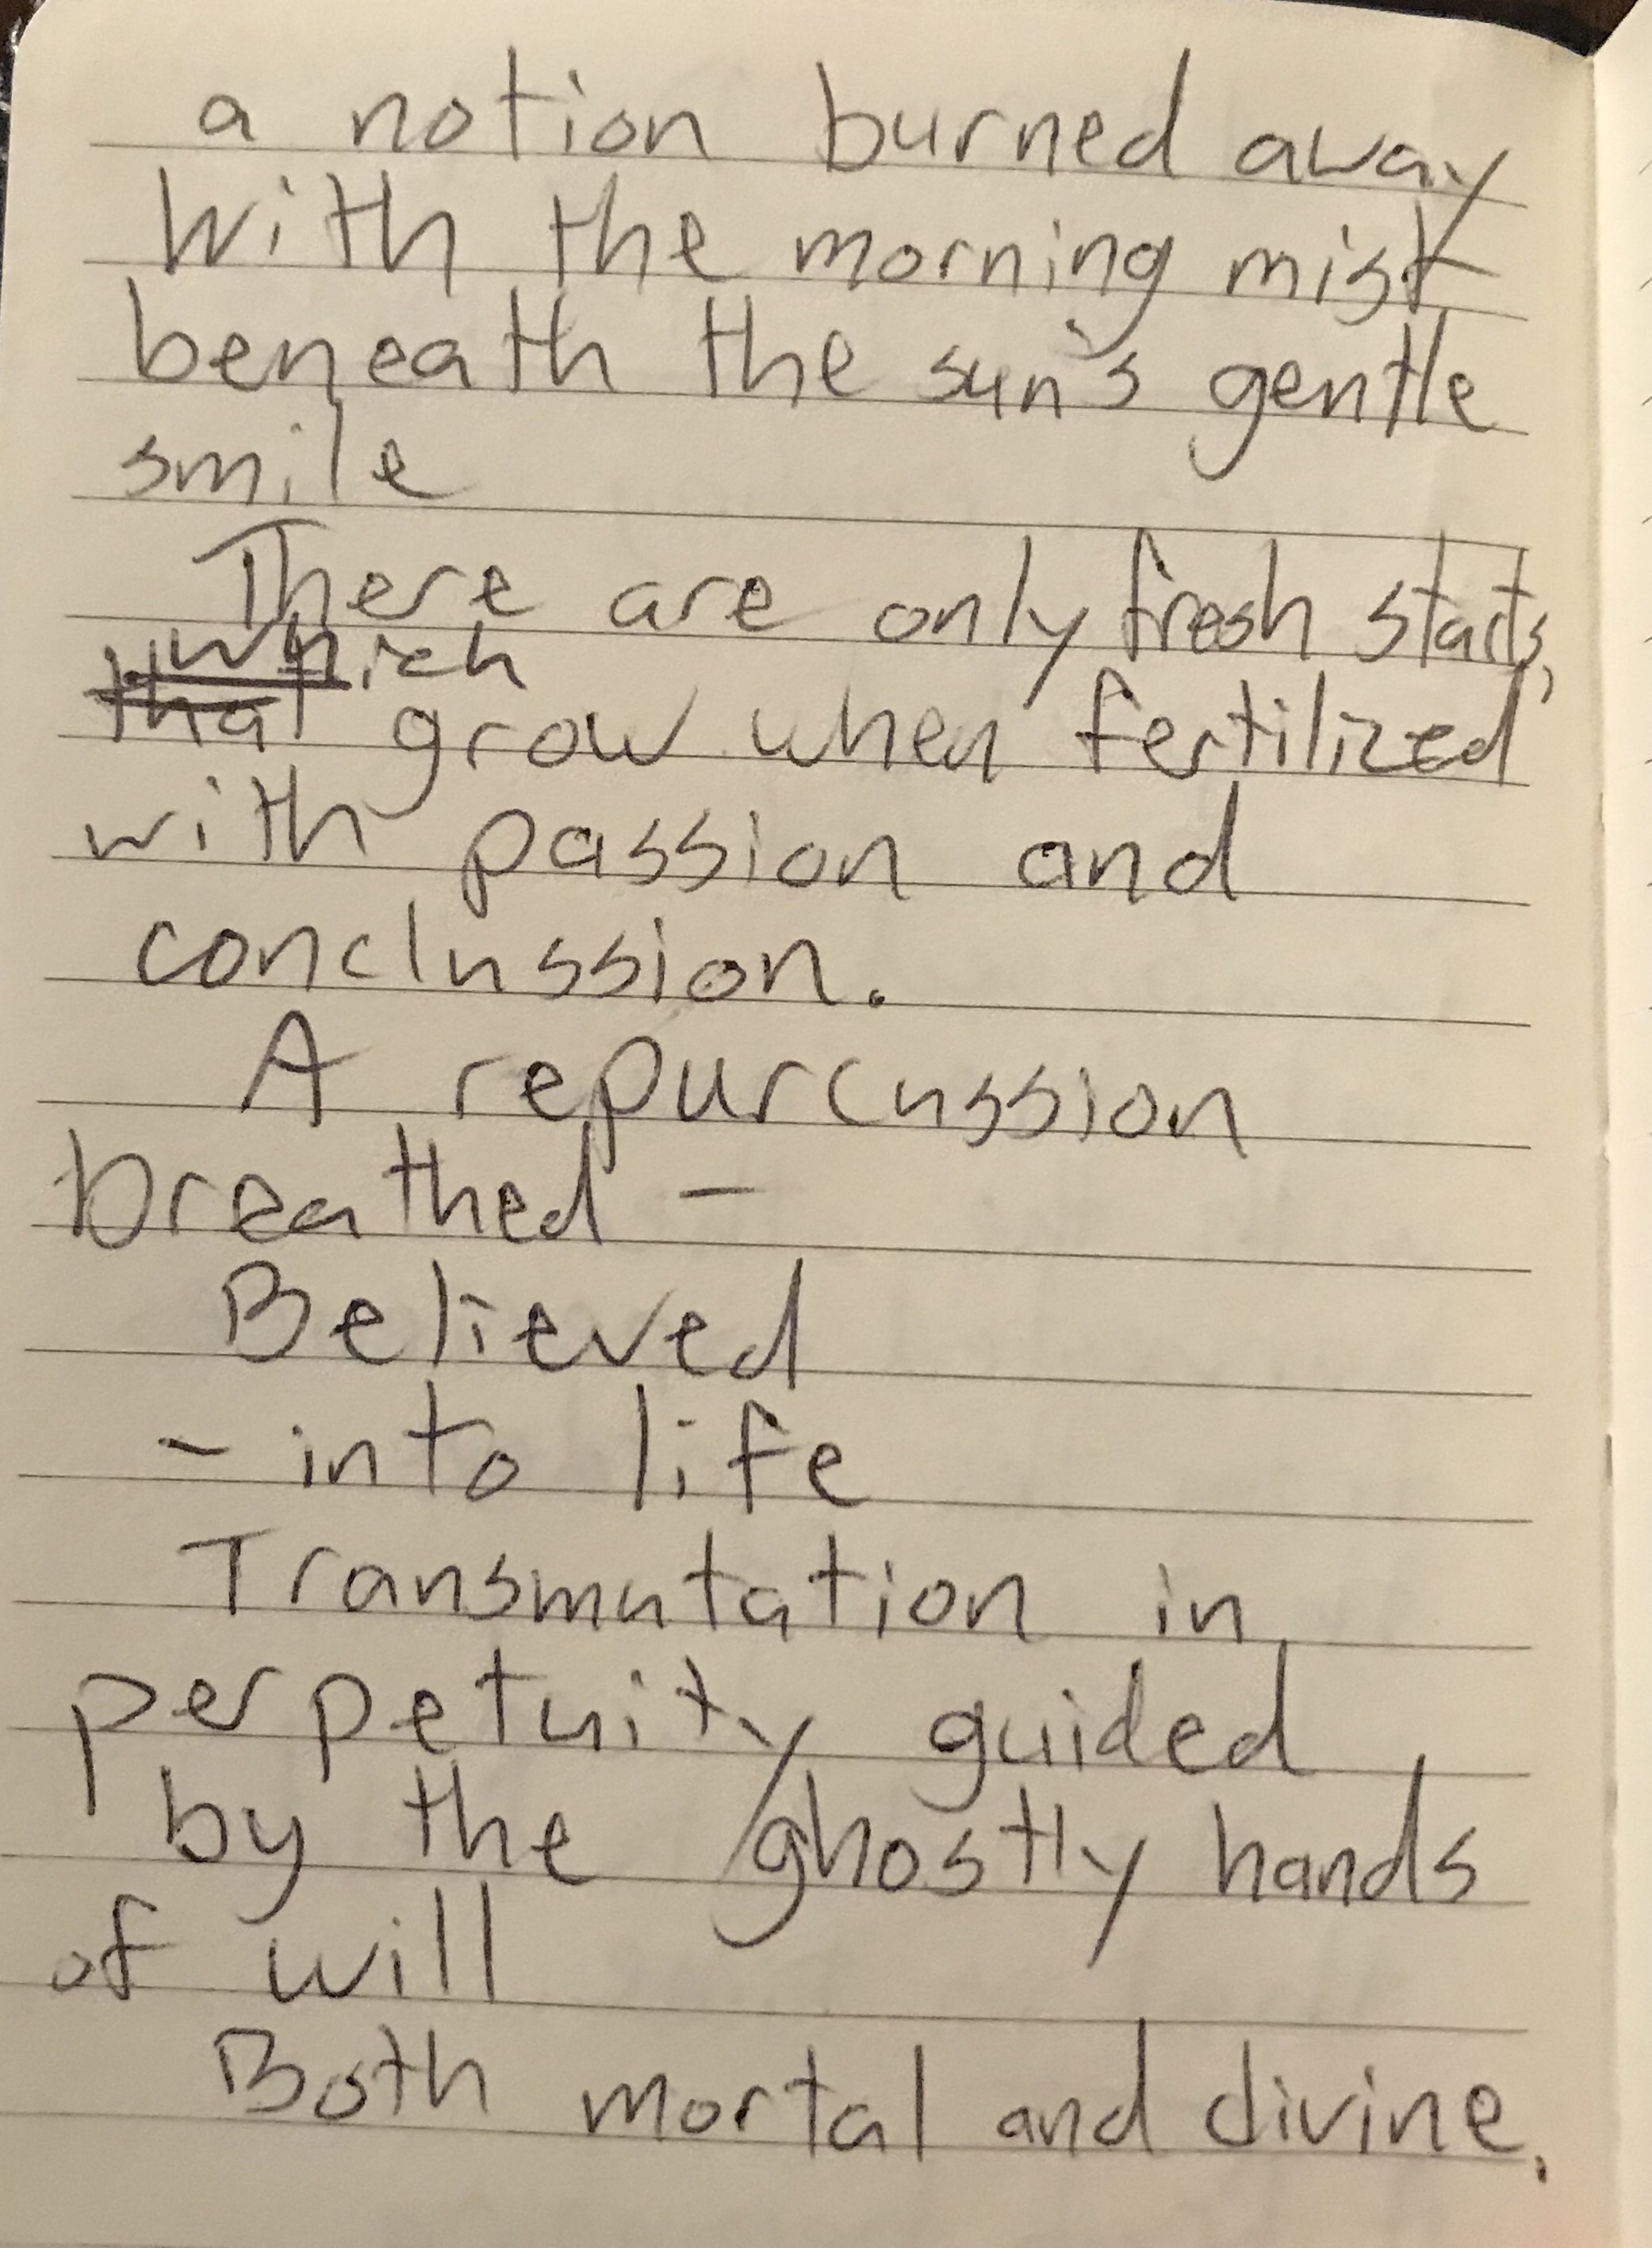 a notion burned away
with the morning mist
beneath the sun's gentle
smile
There are only fresh starts,
which
that grow when fertilized
with passion and
conclussion.
A repurcussion
breathed -
Believed
- into life
Transmutation in
perpetuity guided
by the ghostly hands
of will
Both mortal and divine.